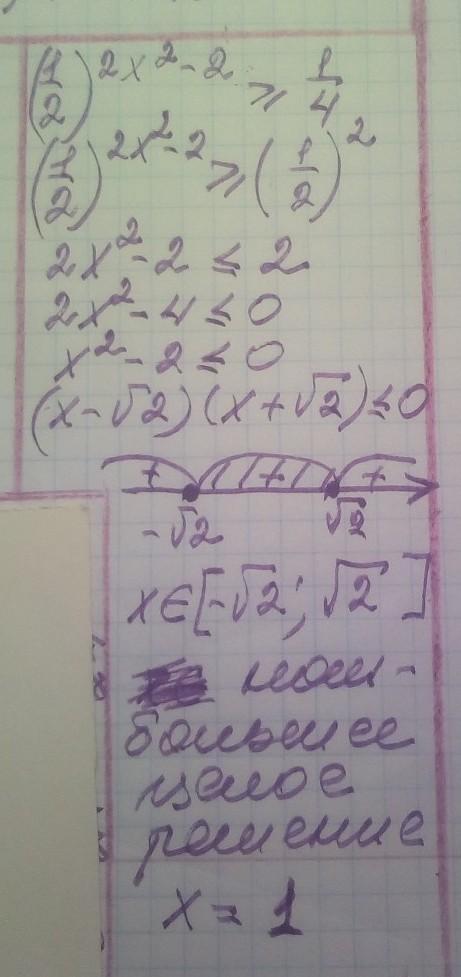 (1/2)^(2x²-2) ≥ 1/4
(1/2)^(2x²-2) ≥ (1/2)²
2x²-2 ≤ 2
2x²-4 ≤ 0
x²-2 ≤ 0
(x-√2)(x+√2) ≤ 0
+ +
-√2 √2
x∈[-√2; √2]
наи-
большее
целое
решение
x = 1